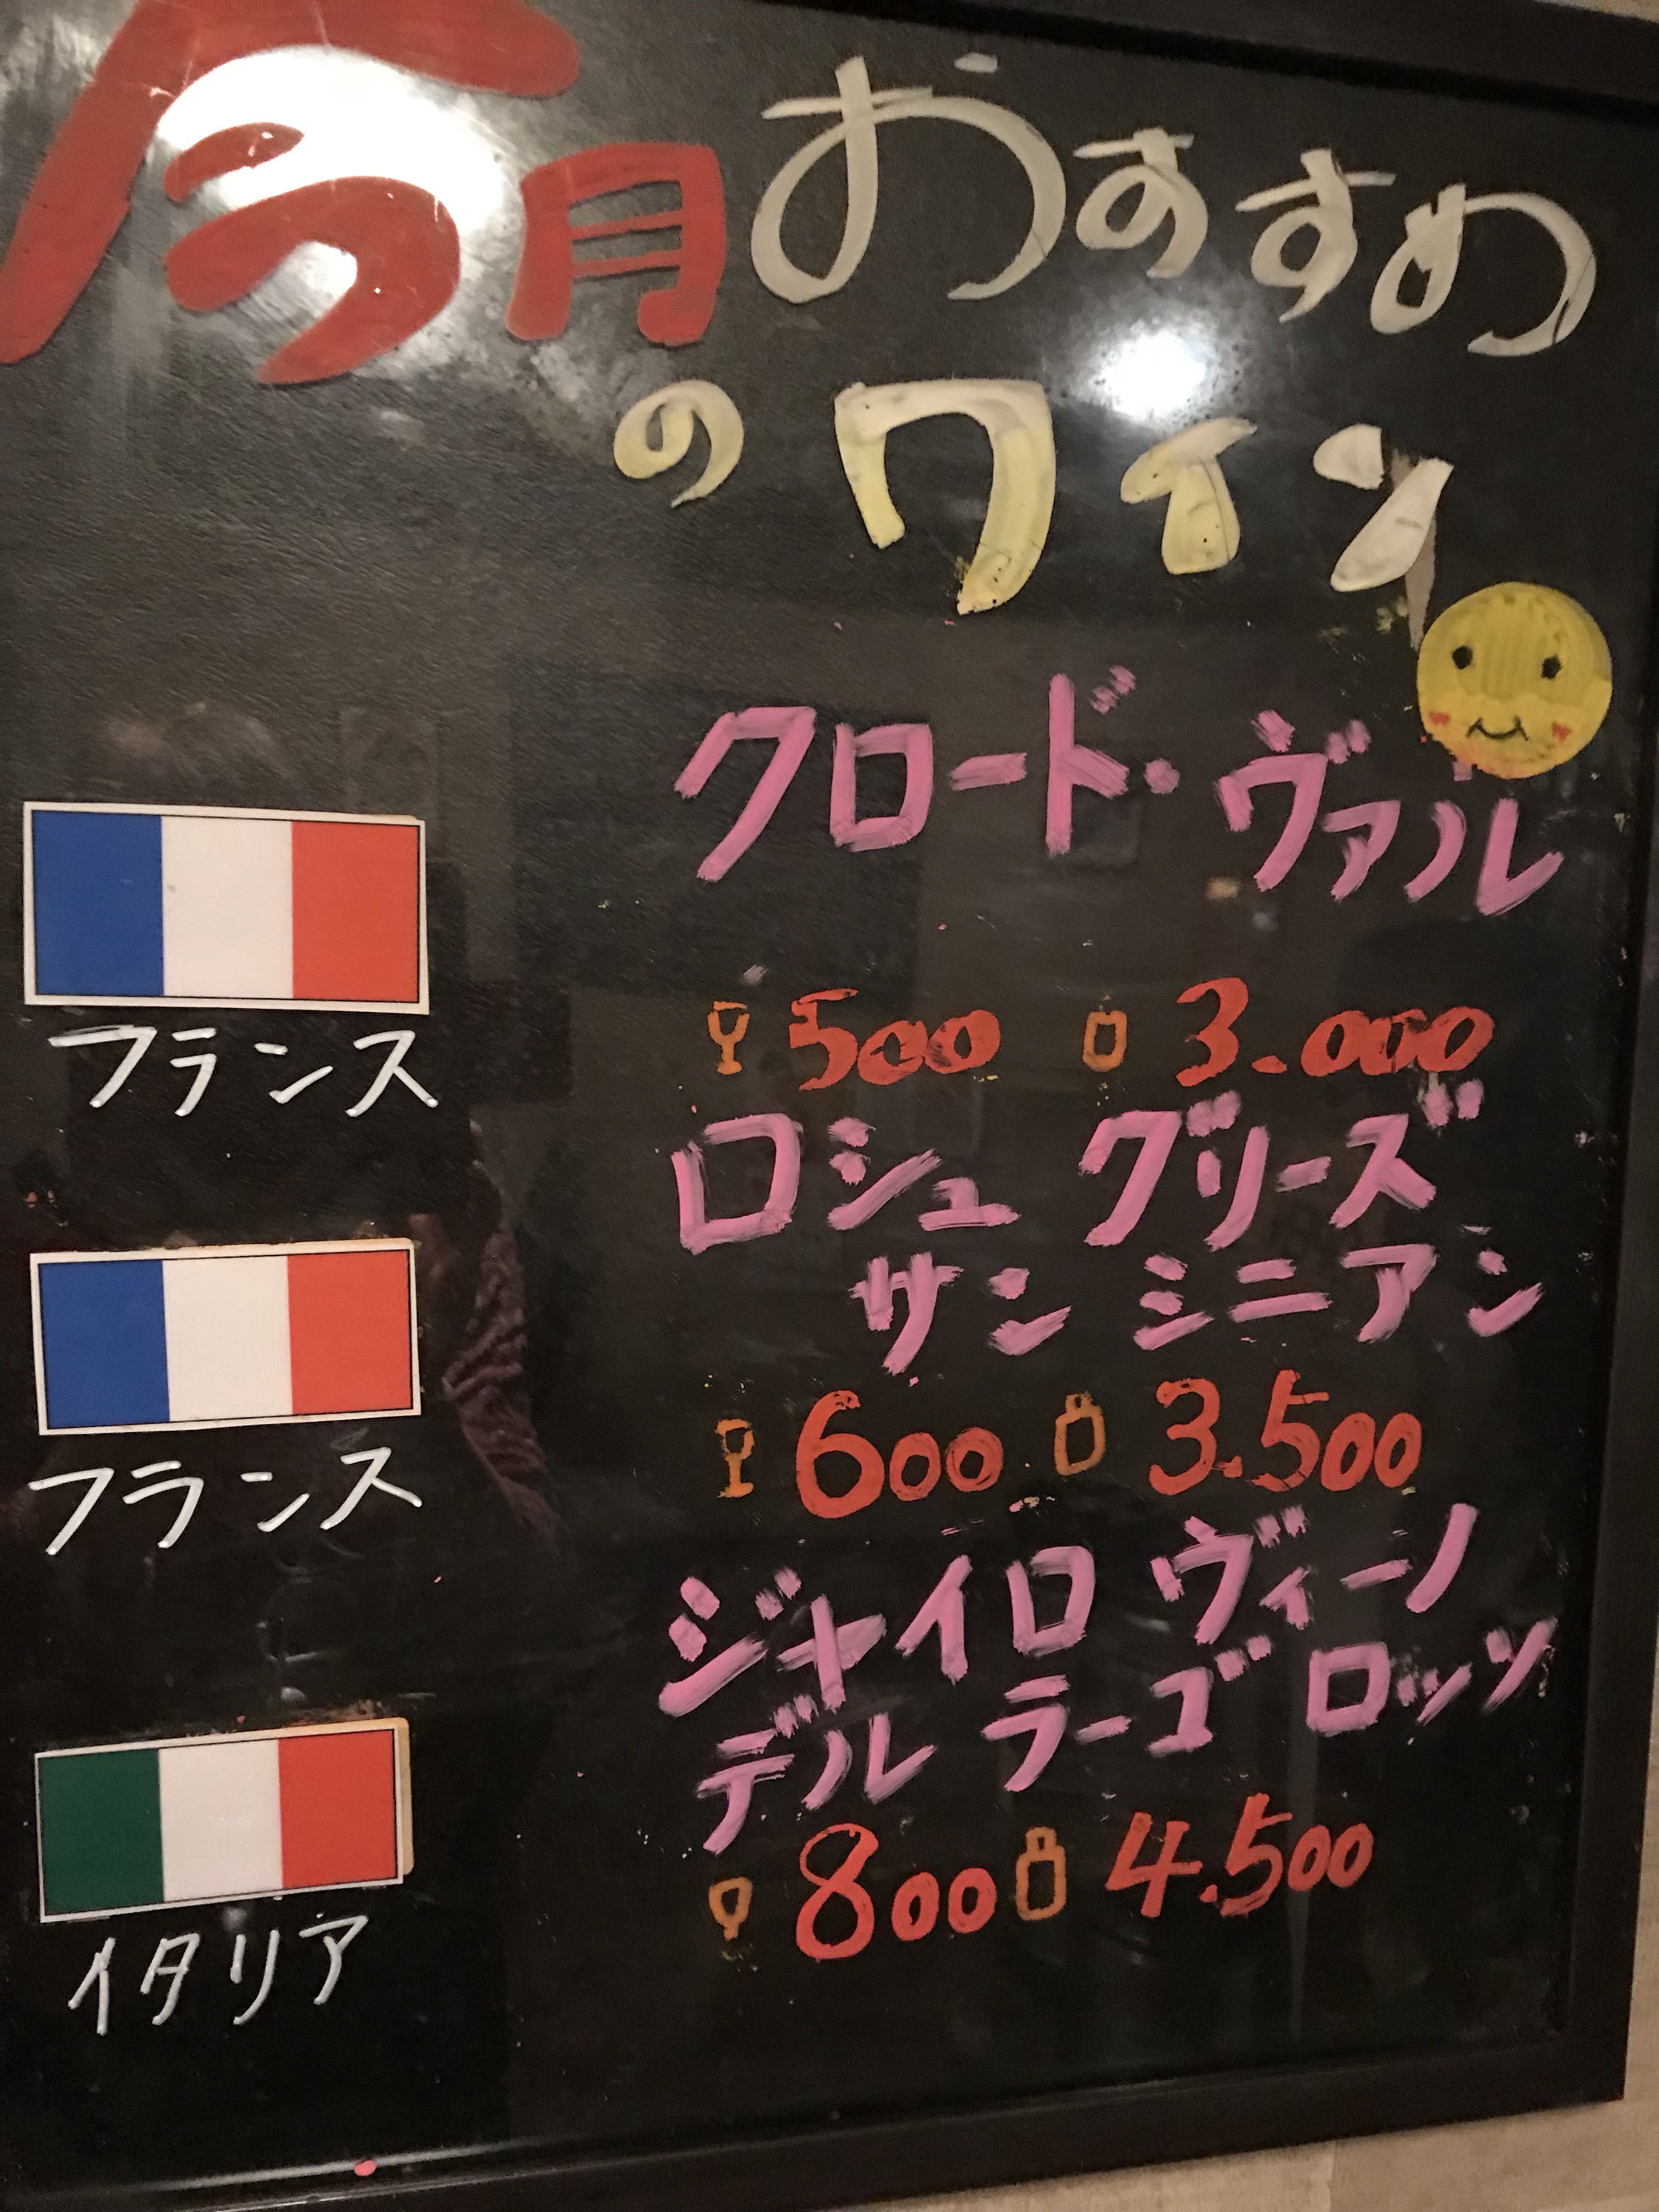 今月おすすめ
のワイン
クロード・ヴァル
フランス
500 3.000
ロシュ グリーズ
サン シニアン
フランス
600 3.500
ジャイロ ヴィーノ
デル ラーゴ ロッソ
イタリア
800 4.500